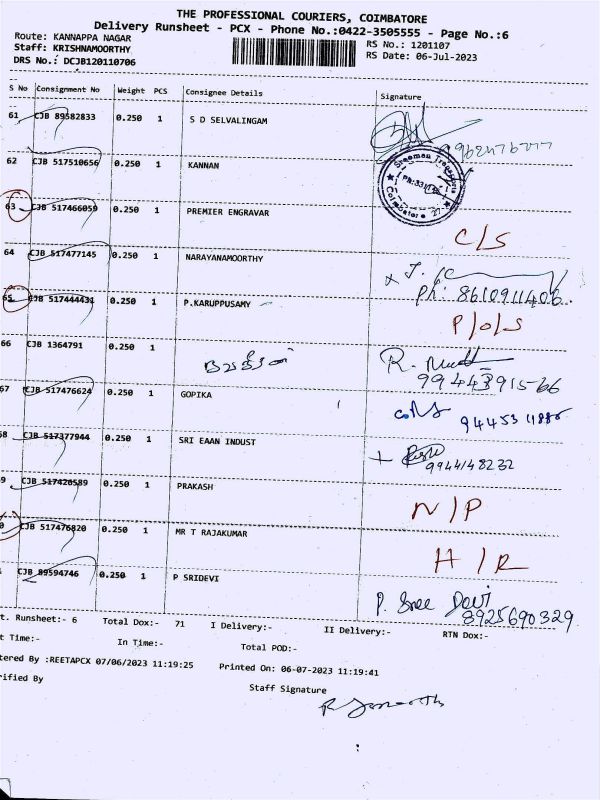 THE PROFESSIONAL COURIERS, COIMBATORE
Delivery Runsheet - PCX - Phone No.:0422-3505555 - Page No.:6
Route: KANNAPPA NAGAR
RS No.: 1201107
Staff: KRISHNAMOORTHY
RS Date: 06-Jul-2023
DRS No.: DCJB120110706
S No Consignment No Weight PCS Consignee Details Signature
61 CJB 89582833 0.250 1 S D SELVALINGAM
62 CJB 517510656 0.250 1 KANNAN
Coimbatore 27
63 CJB 517466059 0.250 1 PREMIER ENGRAVAR
C/S
64 CJB 517477145 0.250 1 NARAYANAMOORTHY
Ph: 8610911406
65 CJB 517444431 0.250 1 P.KARUPPUSAMY
P/O/S
66 CJB 1364791 0.250 1
R.
67 CJB 517476624 0.250 1 GOPIKA
68 CJB 517377944 0.250 1 SRI EAAN INDUST
9944148232
9 CJB 517426589 0.250 1 PRAKASH
N/P
0 CJB 517476820 0.250 1 MR T RAJAKUMAR
H/R
CJB 89594746 0.250 1 P SRIDEVI
P. Sree Devi
8925690329
t. Runsheet:- 6 Total Dox:- 71 I Delivery:- II Delivery:- RTN Dox:-
t Time:- In Time:- Total POD:-
tered By :REETAPCX 07/06/2023 11:19:25 Printed On: 06-07-2023 11:19:41
rified By
Staff Signature